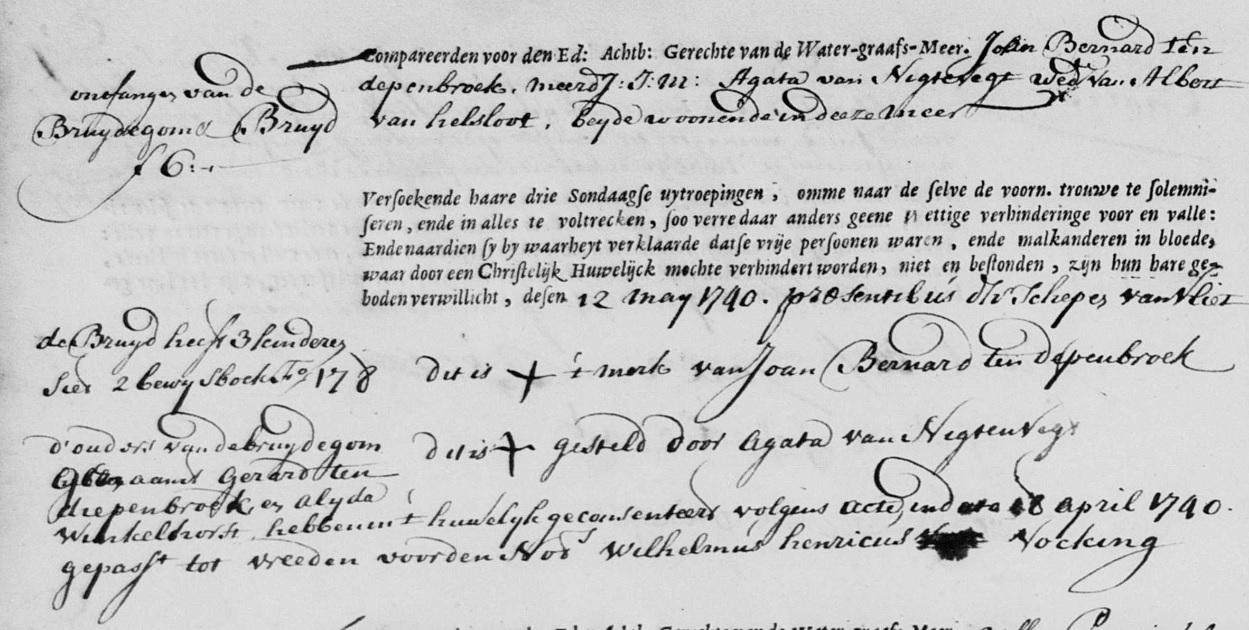 Compareerden voor den Ed: Achtb: Gerechte van de Water-graafs-Meer. Joan Bernard ten
depenbroek, meerdj: J: M: Agata van Nigtevegt Wed: van Albert
van helsloot, beyde woonende in deeze meer
onefanges van de
Bruydegom & Bruyd
f 6:-
Versoekende haare drie Sondaagse uytroepingen, omme naar de selve de voorn. trouwe te solemni-
seren, ende in alles te voltrecken, soo verre daar anders geene wettige verhinderinge voor en valle:
Ende naardien sy by waarheyt verklaarde datse vrije persoonen waren, ende malkanderen in bloede,
waar door een Christelijk Huwelijck mochte verhindert worden, niet en bestonden, zijn hun hare ge-
boden verwillicht, desen 12 may 1740. præsentibus dhr Schepes van Vliet
de Bruyd heeft 3 kinderes
siet 2 bewysboek fo 178
dit is + 't merk van Joan Bernard ten depenbroek
dit is + gesteld door Agata van Nigtenvegt
d'ouders van de bruydegom
genaamt Gerard ten
diepenbroek en Alyda
Winkelhorst hebben in 't huwelyk geconsenteert volgens acte in dato 18 April 1740.
gepasst tot vreeden voor den Nots Wilhelmus henricus Nocking